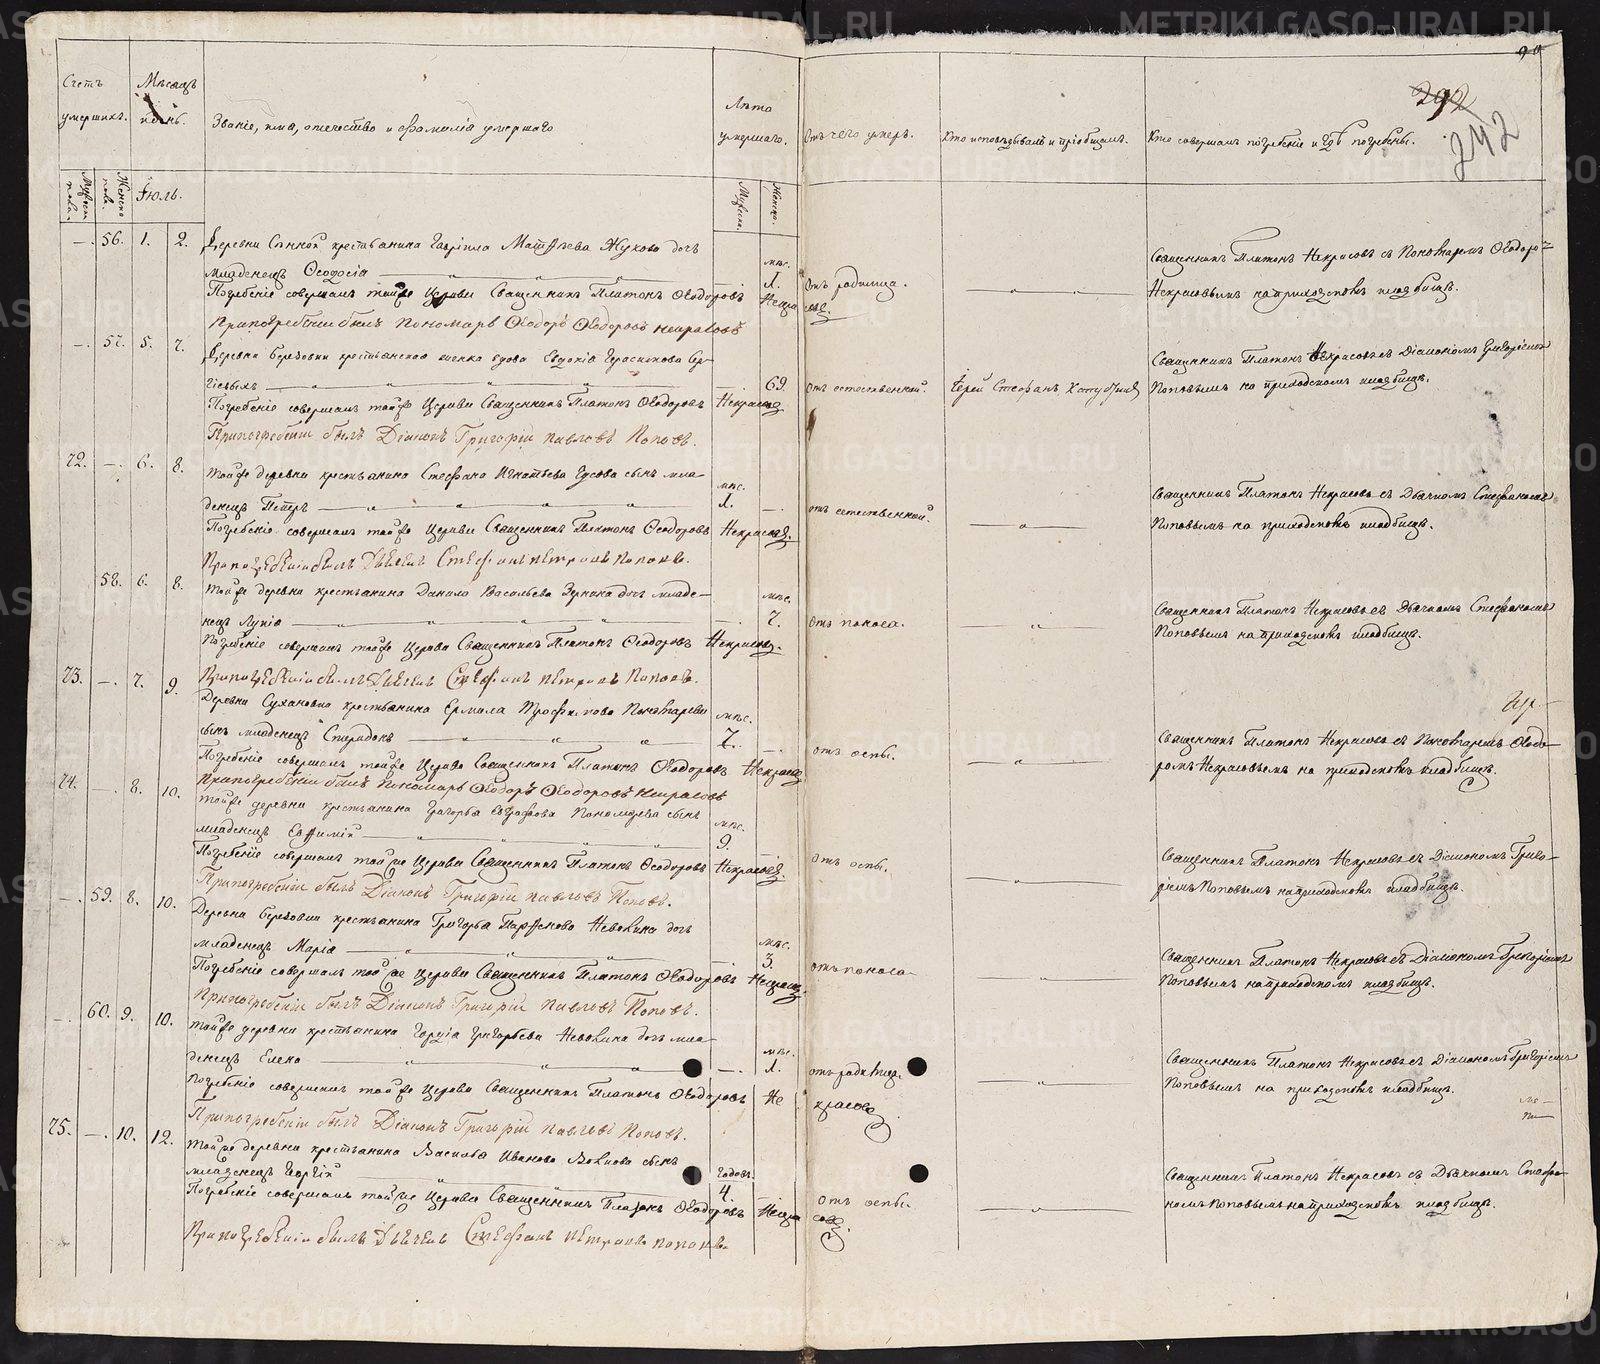 METRIKI.GASO-URAL.RU
90
292
242
Счетъ умершихъ.
Мѣсяцъ и день.
Званіе, имя, отечество и фамилія умершаго
Лѣта умершаго.
Отъ чего умеръ.
Кто исповѣдывалъ и пріобщалъ.
Кто совершалъ погребеніе и гдѣ погребены.
Мужеска пола.
Женска пола.
Іюль.
Мужеск.
Женско.
—. 56. 1. 2. Деревни крестьянина Гавріила Матѳѣева Жукова дочь
младенецъ Ѳеодосія — мѣс. 1. Отъ родимца.
Священникъ Платонъ Некрасовъ съ Пономаремъ Ѳеодоро-
Некрасовымъ на приходскомъ кладбищѣ.
Погребеніе совершалъ тойже Церкви Священникъ Платонъ Ѳеодоровъ Некрасовъ.
Припогребеніи былъ Пономарь Ѳеодоръ Ѳеодоровъ Некрасовъ
—. 57. 5. 7. Деревни Березовки крестьянская женка вдова Евдокія Герасимова Сер-
гіевыхъ — 69. отъ естественной. Іерей Стефанъ
Священникъ Платонъ Некрасовъ съ Діакономъ Григоріемъ
Поповымъ на приходскомъ кладбищѣ.
Погребеніе совершалъ тойже Церкви Священникъ Платонъ Ѳеодоровъ Некрасовъ
Припогребеніи былъ Діаконъ Григорій Павловъ Поповъ.
72. —. 6. 8. Тойже деревни крестьянина Стефана Игнатьева Гусева сынъ мла-
денецъ Петръ — мѣс. 1. —. отъ естественной.
Священникъ Платонъ Некрасовъ съ Дьячкомъ Стефаномъ
Поповымъ на приходскомъ кладбищѣ.
Погребеніе совершалъ тойже Церкви Священникъ Платонъ Ѳеодоровъ Некрасовъ.
Припогребеніи былъ Дьячекъ Стефанъ Петровъ Поповъ.
58. 6. 8. Тойже деревни крестьянина Данила Васильева дочь младе-
нецъ Лукія — мѣс. 7. отъ поноса.
Священникъ Платонъ Некрасовъ съ Дьячкомъ Стефаномъ
Поповымъ на приходскомъ кладбищѣ.
Погребеніе совершалъ тойже Церкви Священникъ Платонъ Ѳеодоровъ Некрасовъ.
Припогребеніи былъ Дьячекъ Стефанъ Петровъ Поповъ.
73. —. 7. 9. Деревни Сухановки крестьянина Ермила Трофимова Пономарева
сынъ младенецъ Спиридонъ — мѣс. 7. —. отъ оспы.
Священникъ Платонъ Некрасовъ съ Пономаремъ Ѳеодо-
ромъ Некрасовымъ на приходскомъ кладбищѣ.
Погребеніе совершалъ тойже Церкви Священникъ Платонъ Ѳеодоровъ Некрасовъ
Припогребеніи былъ Пономарь Ѳеодоръ Ѳеодоровъ Некрасовъ
74. —. 8. 10. Тойже деревни крестьянина Григорья Пономарева сынъ
младенецъ Евѳимій — мѣс. 9. — отъ оспы.
Священникъ Платонъ Некрасовъ съ Діакономъ Григо-
ріемъ Поповымъ на приходскомъ кладбищѣ.
Погребеніе совершалъ тойже Церкви Священникъ Платонъ Ѳеодоровъ Некрасовъ.
Припогребеніи былъ Діаконъ Григорій Павловъ Поповъ.
—. 59. 8. 10. Деревни Березовки крестьянина Григорья Парѳенова Неволина дочь
младенецъ Марія — мѣс. 3. отъ поноса.
Священникъ Платонъ Некрасовъ съ Діакономъ Григоріемъ
Поповымъ на приходскомъ кладбищѣ.
Погребеніе совершалъ тойже Церкви Священникъ Платонъ Ѳеодоровъ Некрасовъ
Припогребеніи былъ Діаконъ Григорій Павловъ Поповъ.
—. 60. 9. 10. Тойже деревни крестьянина Григорьева Неволина дочь мла-
денецъ Елена — мѣс. 1. отъ родимца.
Священникъ Платонъ Некрасовъ съ Діакономъ Григоріемъ
Поповымъ на приходскомъ кладбищѣ.
Погребеніе совершалъ тойже Церкви Священникъ Платонъ Ѳеодоровъ Некрасовъ
Припогребеніи былъ Діаконъ Григорій Павловъ Поповъ.
75. —. 10. 12. Тойже деревни крестьянина Василья Иванова сынъ
младенецъ Георгій — годовъ 4. — отъ оспы.
Священникъ Платонъ Некрасовъ съ Дьячкомъ Стефа-
номъ Поповымъ на приходскомъ кладбищѣ.
Погребеніе совершалъ тойже Церкви Священникъ Платонъ Ѳеодоровъ Некрасовъ.
Припогребеніи былъ Дьячекъ Стефанъ Петровъ Поповъ